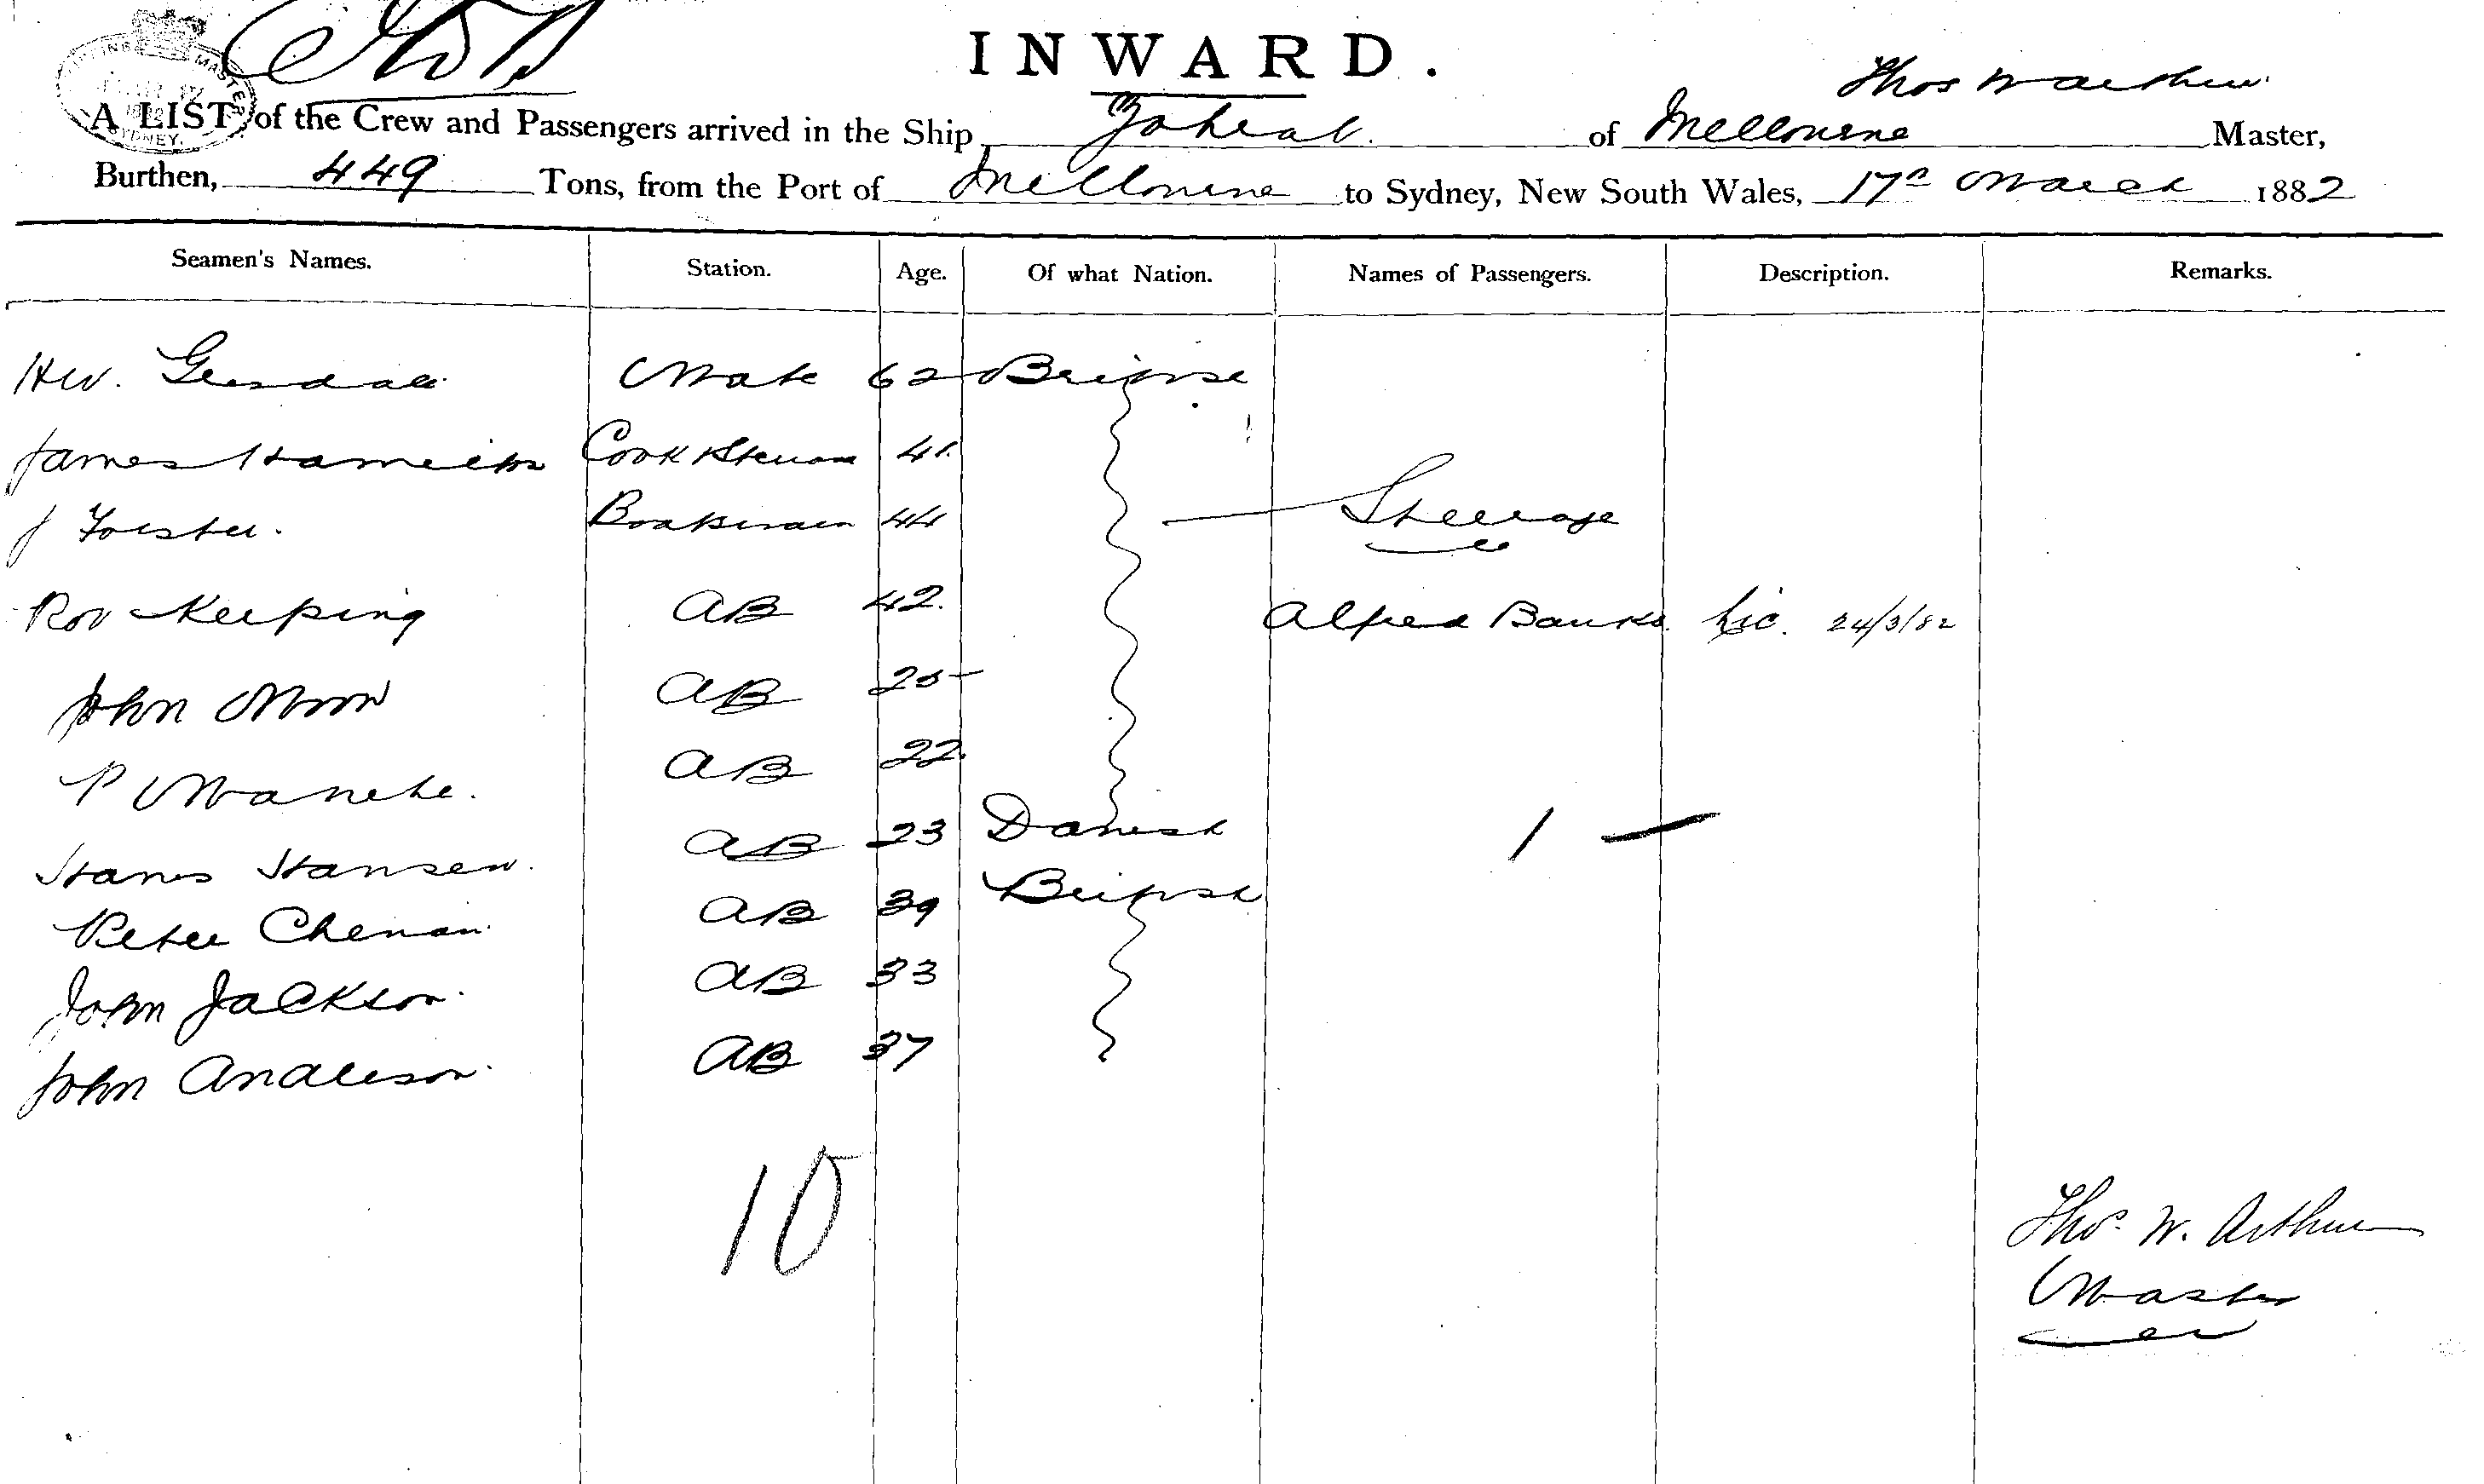 INWARD.
Thos W Arthur
A LIST of the Crew and Passengers arrived in the Ship Zoheab. of Melbourne Master,
Burthen, 449 Tons, from the Port of Melbourne to Sydney, New South Wales, 17th March 1882
Seamen's Names. Station. Age. Of what Nation. Names of Passengers. Description. Remarks.
Mate 62 British
James Hamilton Cook & Steward 41
J Forster. Boatswain 44 Steerage
Keeping AB 42. Alfred Banks. 24/3/82
John Moon AB 25
P AB 22.
Hans Hansen. AB 23 Danish 1 —
Peter AB 39 British
John Jackson. AB 33
John Anderson. AB 37
10
Thos. W. Arthur
Master